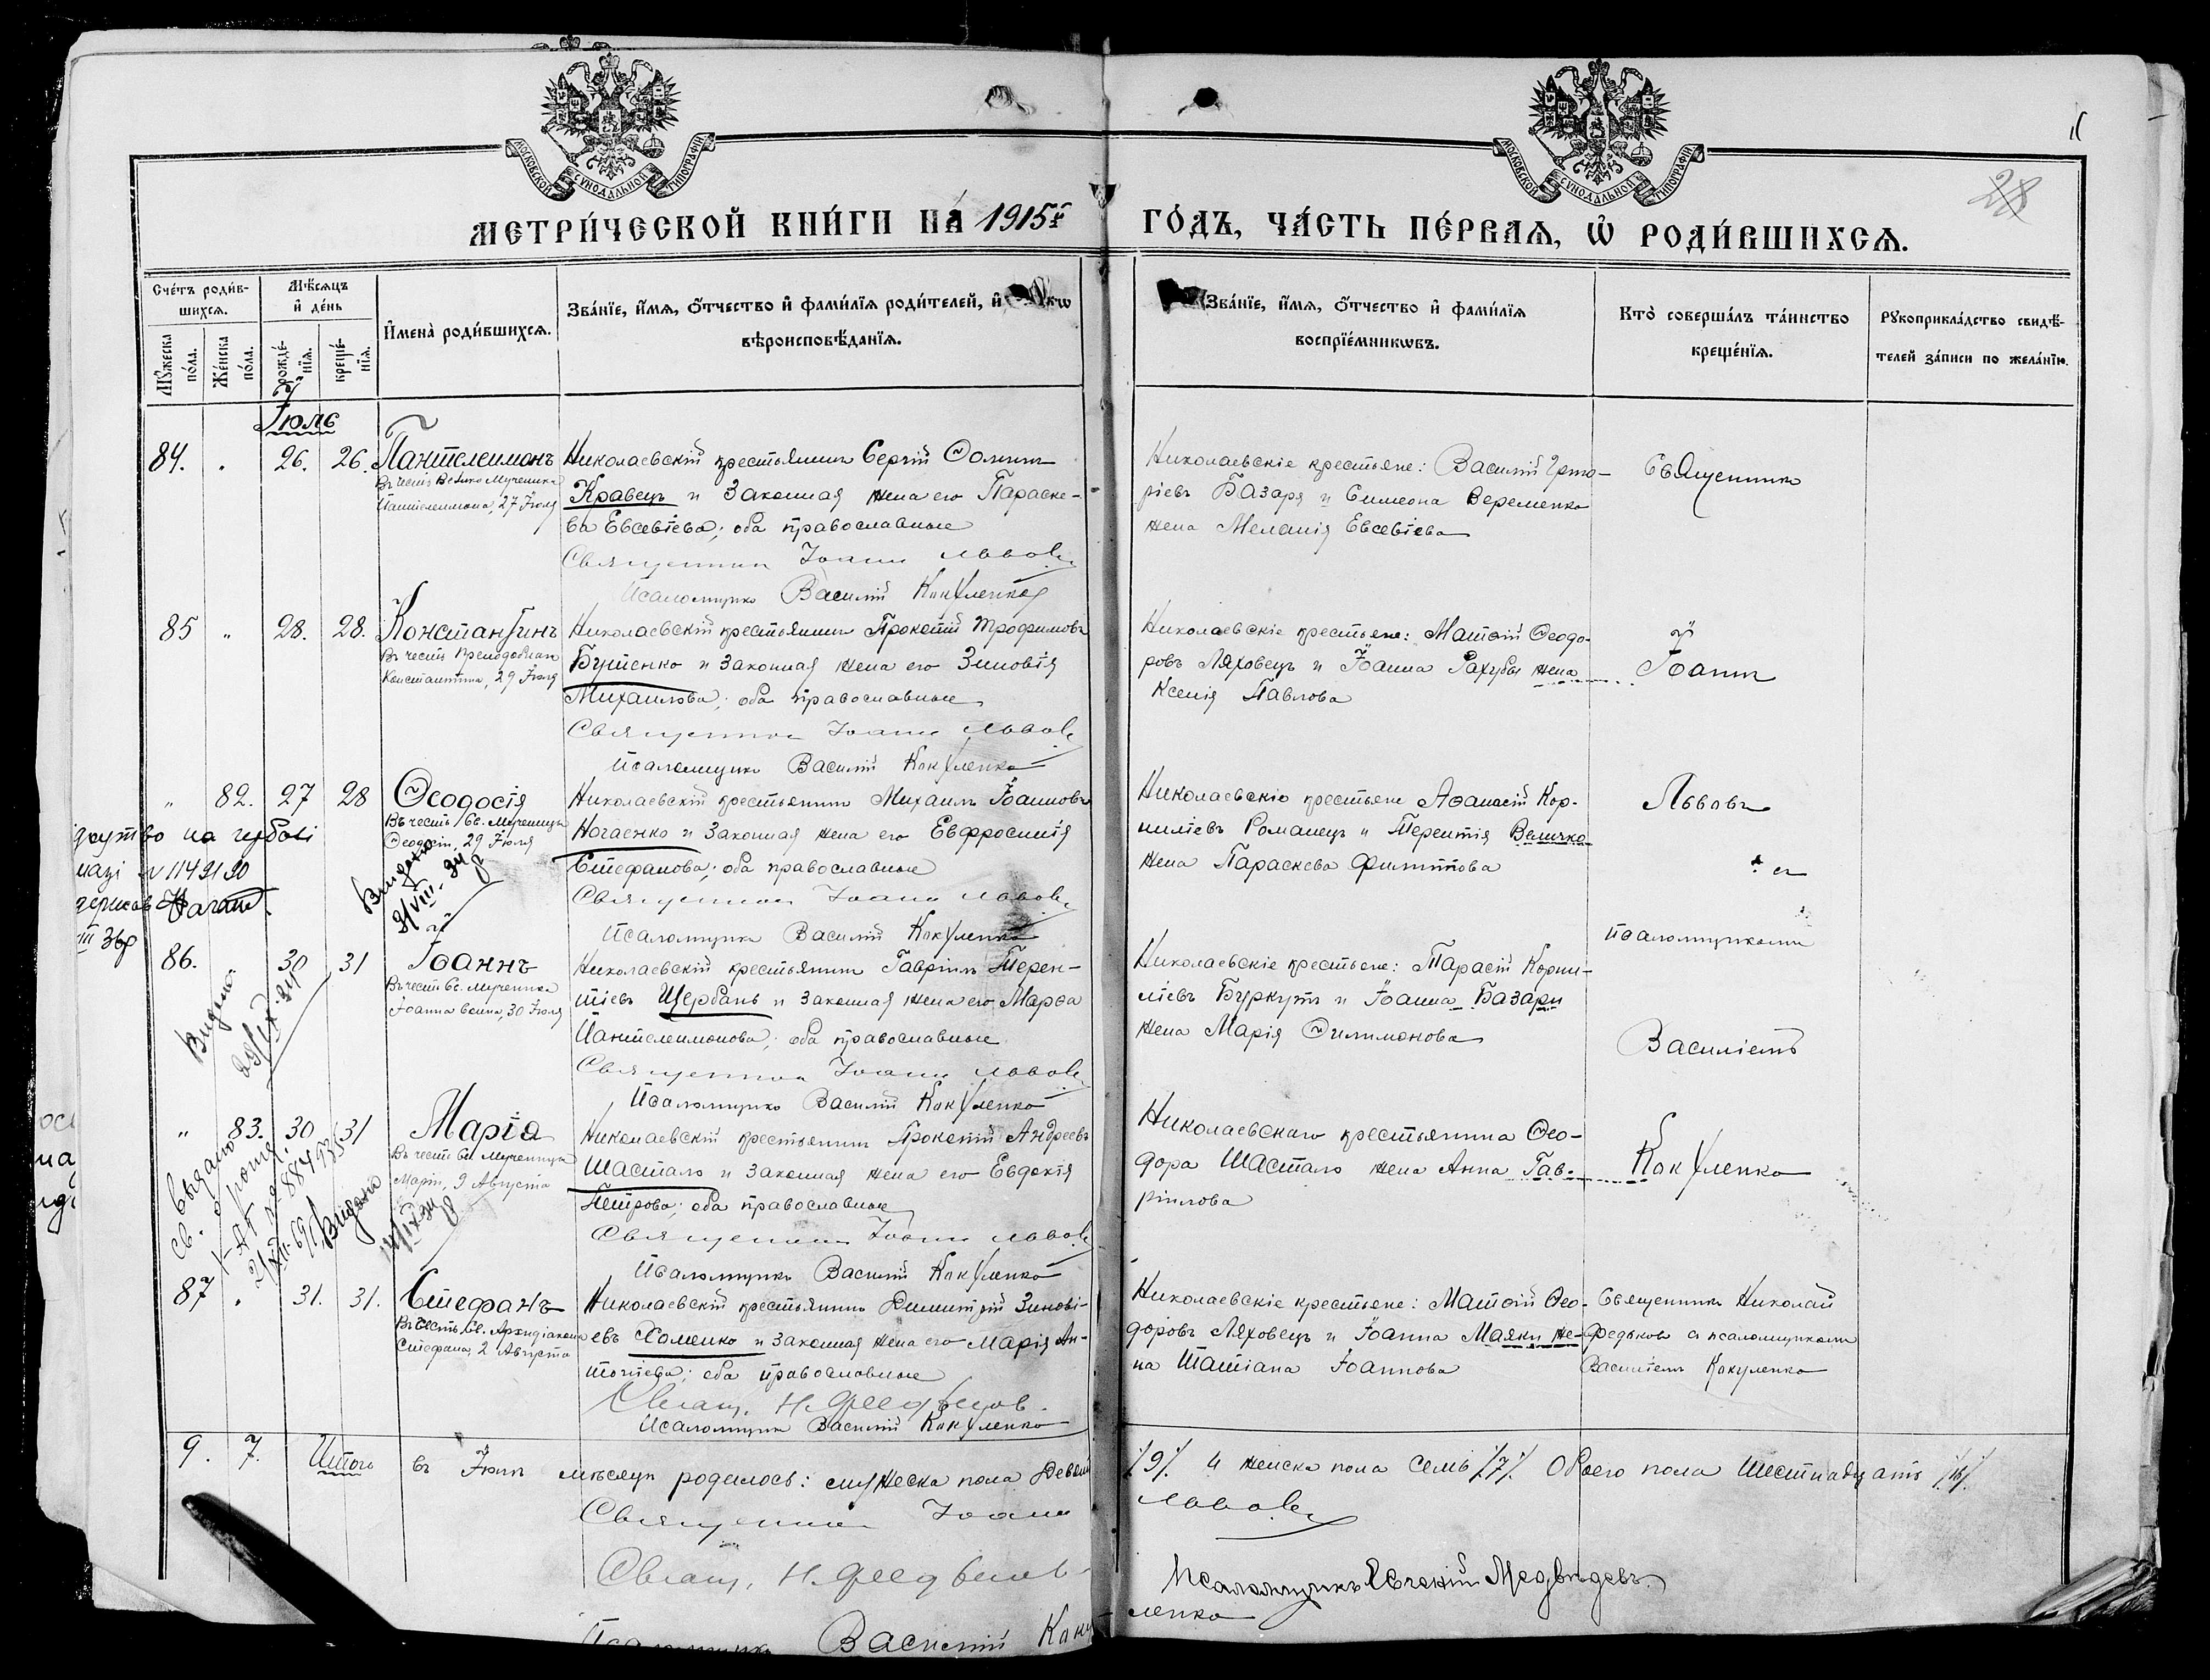 МОСКОВСКОЙ СѴНОДАЛЬНОЙ ТИПОГРАФІИ
МОСКОВСКОЙ СѴНОДАЛЬНОЙ ТИПОГРАФІИ
28
МЕТРИ́ЧЕСКОЙ КНИ́ГИ НА́ 1915й ГО́ДЪ, ЧА́СТЬ ПЕ́РВАѦ, Ѡ҆ РОДИ́ВШИХСѦ.
Сче́тъ роди́в-
шихсѧ.
Мꙋ́жеска по́ла.
Же́нска по́ла.
Мѣ́сѧцъ
и҆ де́нь
рожде́-
нїѧ.
креще́-
нїѧ.
И҆мена̀ роди́вшихсѧ.
Зва́нїе, и҆́мѧ, ѻ҆́тчество и҆ фами́лїѧ роди́телей, и҆
вѣроисповѣ́данїѧ.
Зва́нїе, и҆́мѧ, ѻ҆́тчество и҆ фами́лїѧ
воспрїе́мникѡвъ.
Кто̀ соверша́лъ та́инство
креще́нїѧ.
Рꙋкоприкла́дство свидѣ́-
телей за́писи по жела́нїю.
Іюль
84. " 26. 26. Пантелеимонъ
Въ честь Велико Мученика
Пантелеимона, 27 Іюля
Николаевскій крестьянинъ Сергій Ѳоминъ
Кравецъ и законная жена его Параске-
ва Евсевіева; оба православные
Священникъ Іоаннъ Львовъ
Псаломщикъ Василій Кокуленко
Николаевскіе крестьяне: Василій Григо-
ріевъ Базаря и Симеона Веременко
жена Меланія Евсевіева
Священникъ
85 " 28. 28. Константинъ
Въ честь Преподобнаго
Константина, 29 Іюля
Николаевскій крестьянинъ Прокопій Трофимовъ
Бутенко и законная жена его Зиновія
Михаилова; оба православные
Священникъ Іоаннъ Львовъ
Псаломщикъ Василій Кокуленко
Николаевскіе крестьяне: Матѳій Ѳеодо-
ровъ Ляховецъ и Іоанна Рахубы жена
Ксенія Павлова
Іоаннъ
" 82. 27 28 Ѳеодосія
Въ честь Св. Мученицы
Ѳеодосіи, 29 Іюля
Видано
Николаевскій крестьянинъ Михаилъ Іоанновъ
Ногаенко и законная жена его Евфросинія
Стефанова; оба православные
Священникъ Іоаннъ Львовъ
Псаломщикъ Василій Кокуленко
Николаевскіе крестьяне Аѳанасій Кор-
ниліевъ Романецъ и Терентія Величко
жена Параскева Филиппова
Львовъ
съ
псаломщикомъ
86. 30 31 Іоаннъ
Въ честь Св. Мученика
Іоанна Воина, 30 Іюля
Видано
Николаевскій крестьянинъ Гавріилъ Терен-
тіевъ Щербань и законная жена его Марѳа
Пантелеимонова; оба православные
Священникъ Іоаннъ Львовъ
Псаломщикъ Василій Кокуленко
Николаевскіе крестьяне: Тарасій Корни-
ліевъ Буркутъ и Іоанна Базари
жена Марія Филимонова
Василіемъ
" 83. 30 31 Марія
Въ честь Св. Мученицы
Маріи, 9 Августа
Видано
Николаевскій крестьянинъ Прокопій Андреевъ
Шастало и законная жена его Евдокія
Петрова; оба православные
Священникъ Іоаннъ Львовъ
Псаломщикъ Василій Кокуленко
Николаевскаго крестьянина Ѳео-
дора Шастало жена Анна Гав-
ріилова
Кокуленко
87 " 31. 31. Стефанъ
Въ честь Св. Архидіакона
Стефана, 2 Августа
Николаевскій крестьянинъ Димитрій Зинові-
евъ Хоменко и законная жена его Марія Ан-
тоніева; оба православные
Псаломщикъ Василій Кокуленко
Николаевскіе крестьяне: Матѳій Ѳео-
доровъ Ляховецъ и Іоанна Маяки же-
на Татіана Іоаннова
Священникъ Николай
съ псаломщикомъ
Василіемъ Кокуленко
9. 7. Итого въ Іюлѣ мѣсяцѣ родилось: мужеска пола девять /9/. и женска пола семь /7/. Обоего пола шестнадцать /16/.
Священникъ Іоаннъ Львовъ
Псаломщикъ Евгеній Медвѣдевъ
Псаломщикъ Василій Кокуленко